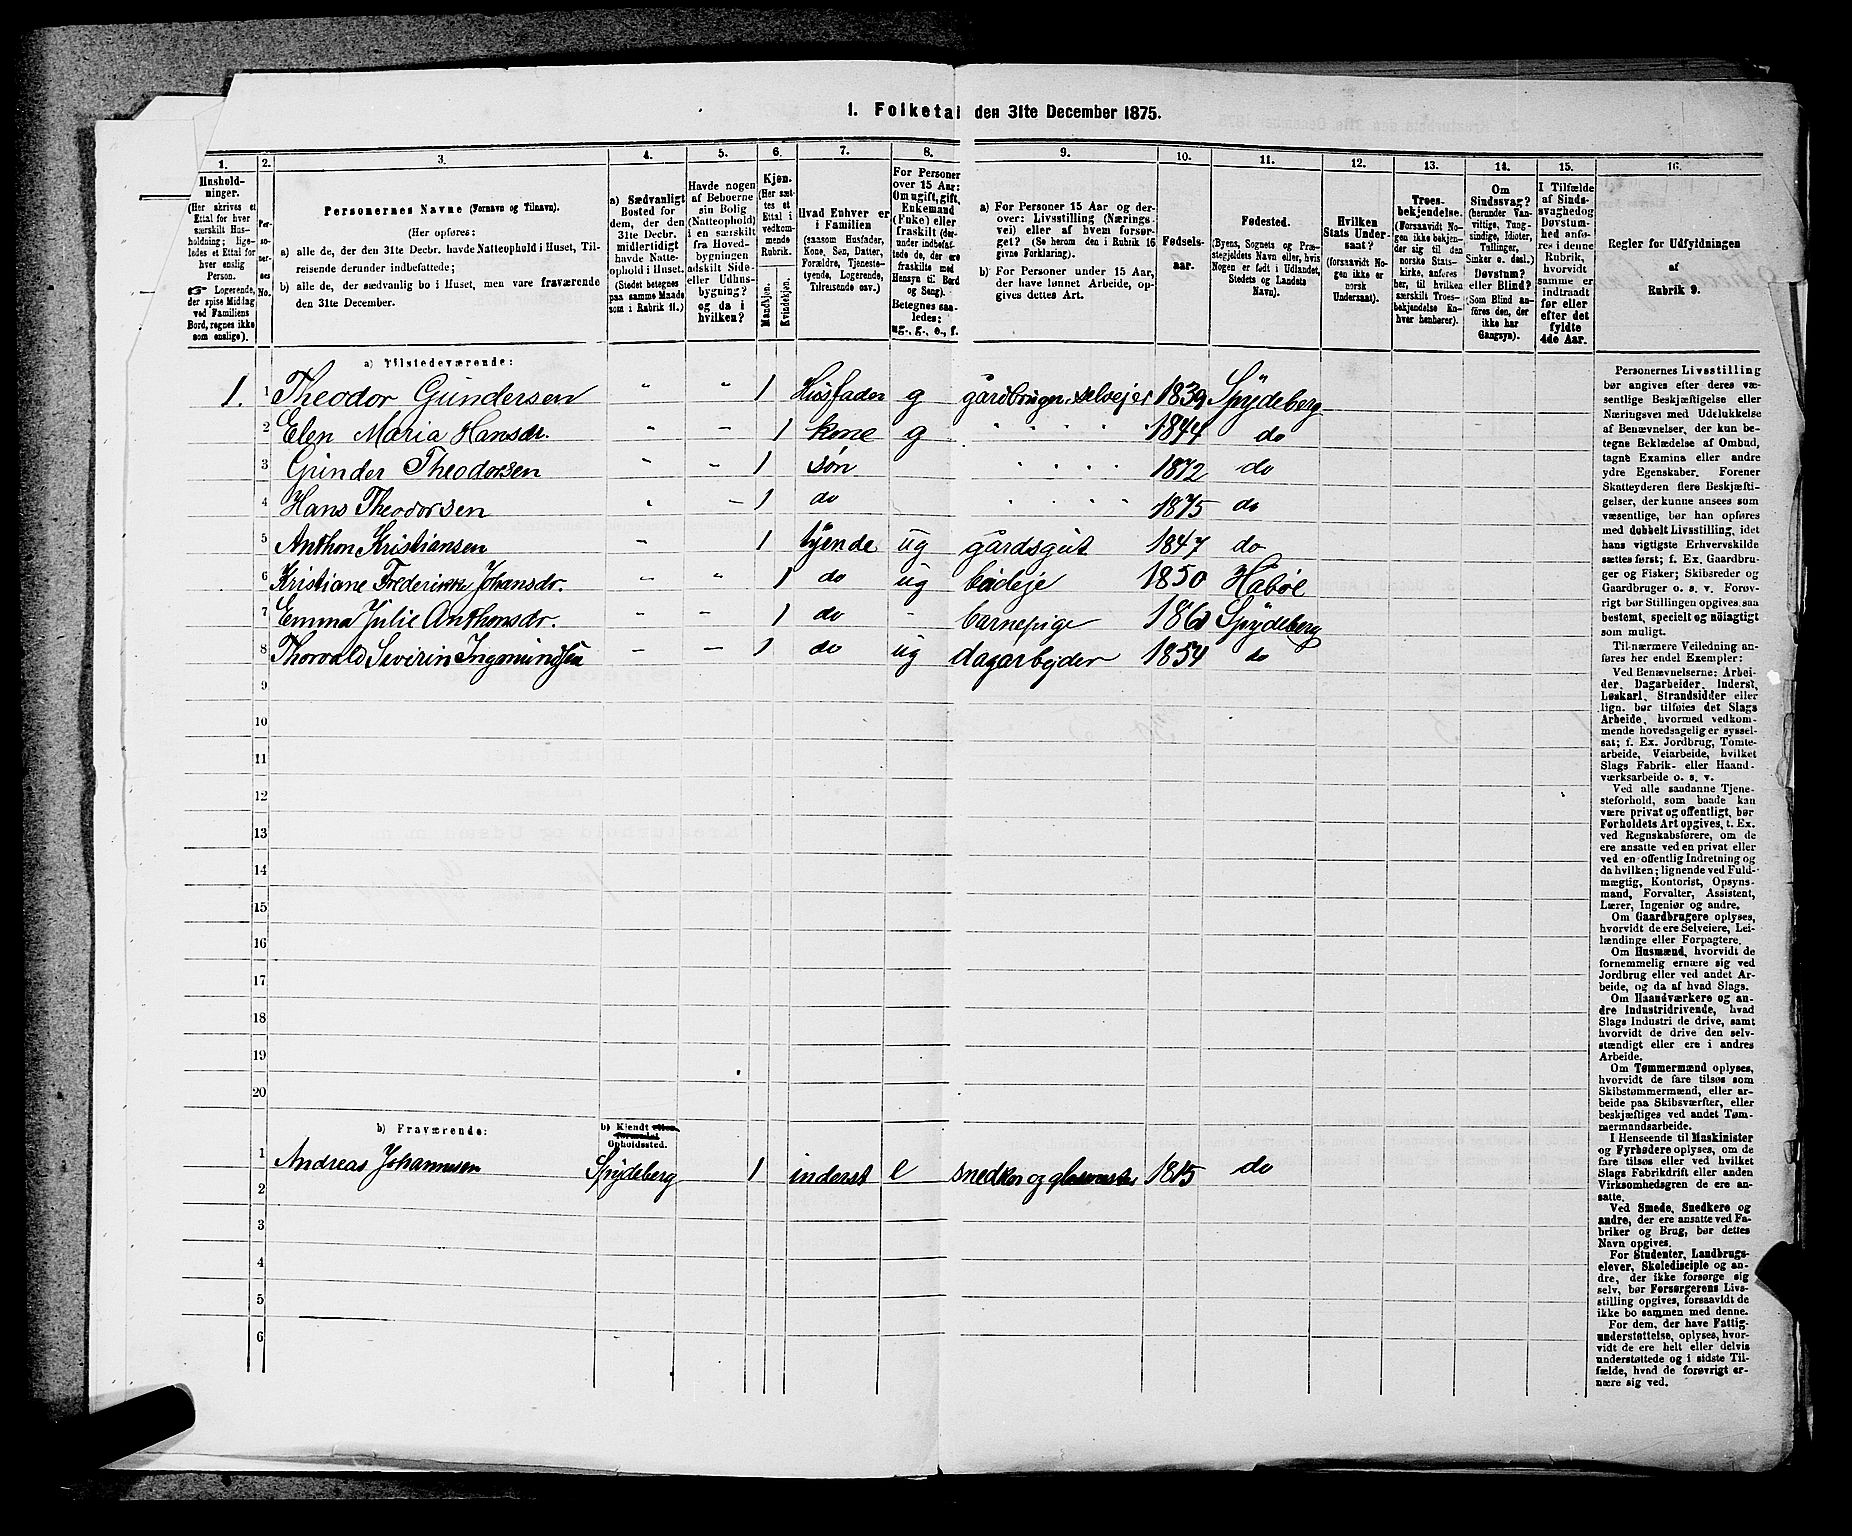 1. Folketal den 31te December 1875.
1. 2. 3. 4. 5. 6. 7. 8. 9. 10. 11. 12. 13. 14. 15. 16.
Husholdninger.
(Her skrives et
Ettal for hver
særskilt Husholdning;
ligeledes
et Ettal for
hver enslig
Person.
☞ Logerende,
der spise Middag
ved Familiens
Bord, regnes ikke
som enslige).
Personernes No.
Personernes Navne (Fornavn og Tilnavn).
(Her opføres:
a) alle de, der den 31te Decbr. havde Natteophold i Huset, Tilreisende
derunder indbefattede;
b) alle de, der sædvanlig bo i Huset, men vare fraværende
den 31te December.
a) Sædvanligt
Bosted for
dem, der den
31te Decbr.
midlertidigt
havde Natteophold
i Huset.
(Stedet betegnes
paa samme Maade
som i Rubrik 11.)
Havde nogen
af Beboerne
sin Bolig
(Natteophold)
i en særskilt
fra Hovedbygningen
adskilt Side-
eller Udhusbygning?
og da i
hvilken?
Kjøn.
(Her sættes
et
Ettal i
vedkommende
Rubrik.
Mandkjøn.
Kvindekjøn.
Hvad Enhver er
i Familien
(saasom Husfader,
Kone, Søn, Datter,
Forældre, Tjenestetyende,
Logerende,
Tilreisende osv.)
For Personer
over 15 Aar:
Om ugift, gift,
Enkemand
(Enke) eller
fraskilt (derunder
indbefattede
de, der ere
fraskilte med
Hensyn til Bord
og Seng).
Betegnes saaledes:
ug., g., e., f.
a) For Personer 15 Aar og derover:
Livsstilling (Næringsvei)
eller af hvem forsørget?
(Se herom den i Rubrik 16
givne Forklaring).
b) For Personer under 15 Aar,
der have lønnet Arbeide, opgives
dettes Art.
Fødselsaar.
Fødested.
(Byens, Sognets og Præstegjeldets
Navn eller, hvis
Nogen er født i Udlandet,
Stedets og Landets
Navn).
Hvilken
Stats Undersaat?
(forsaavidt Nogen
ikke er
norsk
Undersaat).
Troesbekjendelse.
(Forsaavidt Nogen
ikke bekjender
sig til den
norske Statskirke,
anføres
her, til hvilken
særskilt Troesbekjendelse
Enhver
henhører).
Om
Sindssvag?
(herunder Vanvittige,
Tungsindige,
Idioter,
Tullinger,
Sinker o. desl.).
Døvstum?
eller Blind?
(Som Blind anføres
den, der
ikke har
Gangsyn).
I Tilfælde
af Sindssvaghed
og
Døvstumhed
anføres
i denne
Rubrik,
hvorvidt
samme er
indtraadt
før eller
efter det
fyldte
4de Aar.
Regler for Udfyldningen
af
Rubrik 9.
a) Tilstedeværende:
1. 1 Theodor Gundersen " " 1 Husfader g gårdbruger selvejer 1839 Spydeberg
2 Elen Maria Hansdr. " - 1 kone g " " " " 1844 do
3 Gunder Theodorsen " - 1 søn " " " " 1872 do
4 Hans Theodorsen " - 1 do " " " " 1875 do
5 Anthon Kristiansen - 1 tyende ug gårdsgut 1847 do
6 Kristiane Frederikke Johansdr. - " 1 do ug budeje 1850 Håbøl
7 Emma Julie Anthonsdr. - - 1 do - barnepige Spydeberg
8 Thorvald Severin Ingmundsen - - 1 do ug dagarbejder 1854 do
9
10
11
12
13
14
15
16
17
18
19
20
b) Fraværende:
b) Kjendt eller
formodet
Opholdssted.
1 Andreas Johannesen Spydeberg 1 inderst e snedker og glasmester 1815 do
2
3
4
5
6
Personernes Livsstilling
bør angives efter deres væsentlige
Beskjæftigelse eller
Næringsvei med Udelukkelse
af Benævnelser, der kun betegne
Beklædelse af Ombud,
tagne Examina eller andre
ydre Egenskaber. Forener
Skatteyderen flere Beskjæftigelser,
der kunne ansees som
væsentlige, bør han opføres
med dobbelt Livsstilling, idet
hans vigtigste Erhvervskilde
sættes først; f. Ex. Gaardbruger
og Fisker; Skibsreder og
Gaardbruger o. s. v. Forøvrigt
bør Stillingen opgives saa
bestemt, specielt og nøiagtigt
som muligt.
Til nærmere Veiledning anføres
her endel Exempler:
Ved Benævnelserne: Arbeider,
Dagarbeider, Inderst,
Løskarl, Strandsidder eller
lign. bør tilføies det Slags
Arbeide, hvormed vedkommende
hovedsagelig er sysselsat;
f. Ex. Jordbrug, Tomtearbeide,
Veiarbeide, hvilket
Slags Fabrik- eller Haandværksarbeide
o. s. v.
Ved alle saadanne Tjenesteforhold,
som baade kan
være privat og offentligt, bør
Forholdets Art opgives, t. Ex.
ved Regnskabsførere, om de
ere ansatte ved en privat eller
ved en offentlig Indretning og
da hvilken; lignende ved Fuldmægtig,
Kontorist, Opsynsmand,
Forvalter, Assistent,
Lærer, Ingeniør og andre.
Om Gaardbrugere oplyses,
hvorvidt de ere Selveiere, Leilændinge
eller Forpagtere.
Om Husmænd, hvorvidt de
fornemmelig ernære sig ved
Jordbrug eller ved andet Arbeide,
og da af hvad Slags.
Om Haandværkere og andre
Industridrivende, hvad
Slags Industri de drive, samt
hvorvidt de drive den selvstændigt
eller ere i andres
Arbeide.
Om Tømmermænd oplyses,
hvorvidt de fare tilsøs som
Skibstømmermænd, eller arbeide
paa Skibsværfter, eller
beskjæftiges ved andet Tømmermandsarbeide.
I Henseende til Maskinister
og Fyrbødere oplyses, om de
fare tilsøs eller ved hvilket
Slags Fabrikdrift eller anden
Virksomhedsgren de ere ansatte.
Ved Smede, Snedkere og
andre, der ere ansatte ved Fabriker
og Brug, bør dettes
Navn opgives.
For Studenter, Landbrugselever,
Skoledisciple og andre,
der ikke forsørge sig
selv, bør Forsørgerens Livsstilling
opgives, forsaavidt de
ikke bo sammen med denne.
For dem, der have Fattigunderstøttelse,
oplyses, hvorvidt
de ere helt eller delvis
understøttede og i sidste Tilfælde,
hvad de forøvrigt ernære
sig ved.